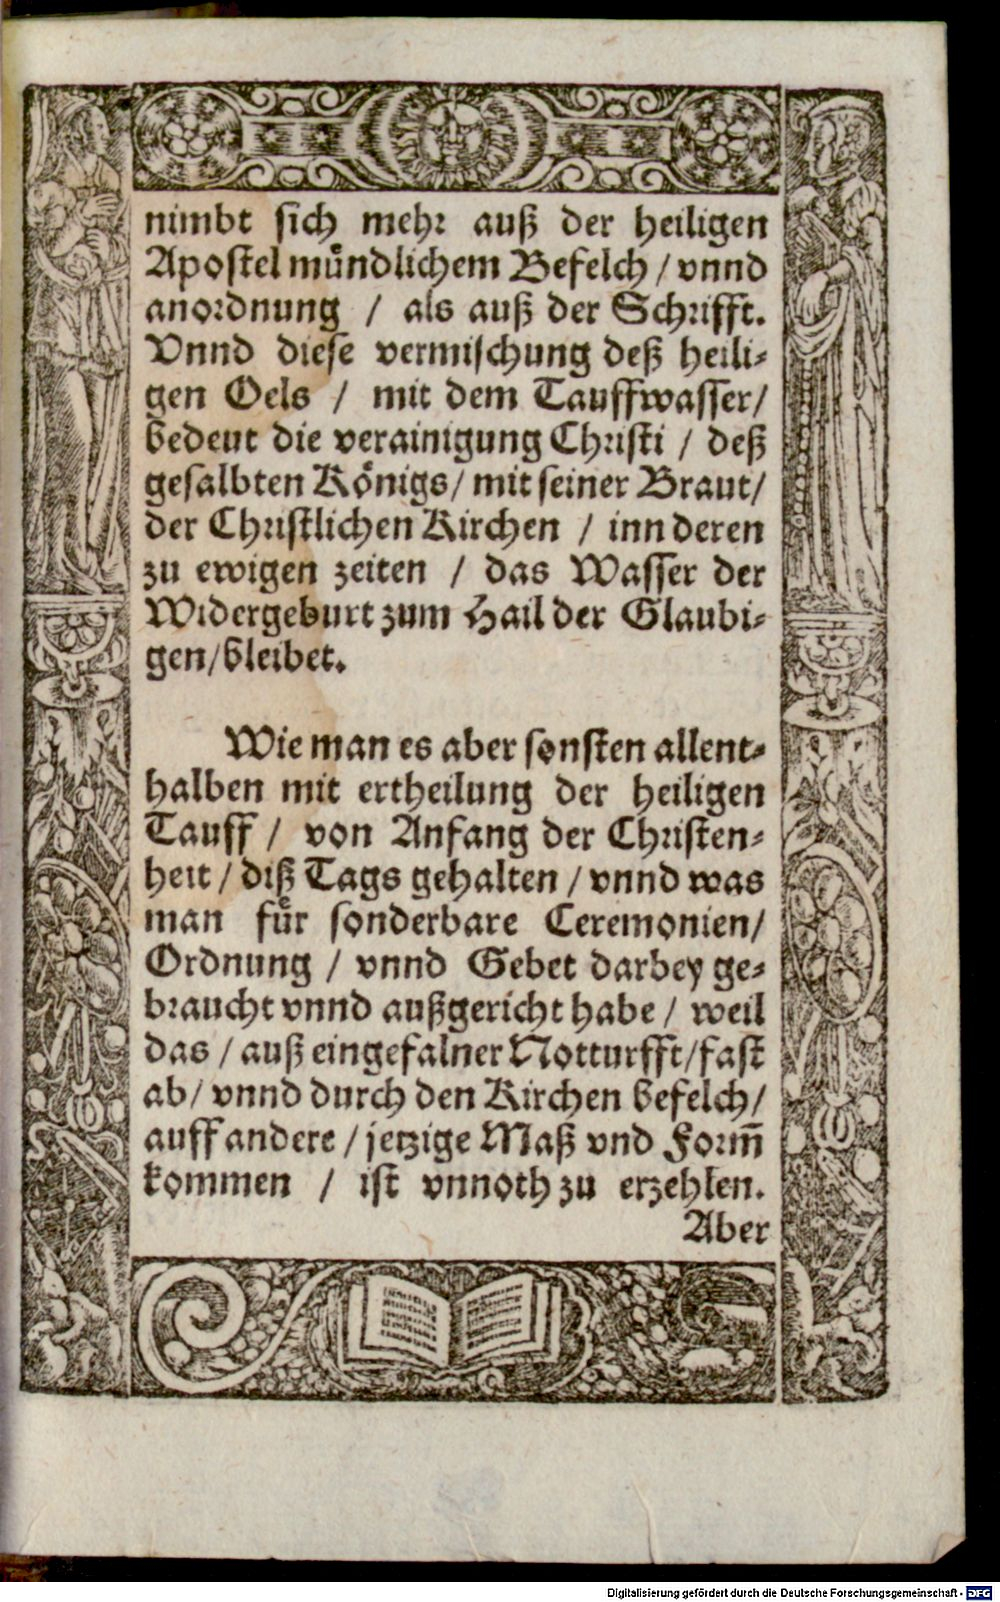 nimbt sich mehr auß der heiligen
Apostel muͤndlichem Befelch / vnnd
anordnung / als auß der Schrifft.
Vnnd diese vermischung deß heili⸗
gen Oels / mit dem Tauffwasser/
bedeut die verainigung Christi / deß
gesalbten Koͤnigs/ mit seiner Braut/
der Christlichen Kirchen / inn deren
zu ewigen zeiten / das Wasser der
Widergeburt zum Hail der Glaubi⸗
gen/bleibet.
Wie man es aber sonsten allent⸗
halben mit ertheilung der heiligen
Tauff / von Anfang der Christen⸗
heit / diß Tags gehalten / vnnd was
man fuͤr sonderbare Ceremonien/
Ordnung / vnnd Gebet darbey ge⸗
braucht vnnd außgericht habe / weil
das / auß eingefalner Notturfft/fast
ab/ vnnd durch den Kirchen befelch/
auff andere / jetzige Maß vnd Form̃
kommen / ist vnnoth zu erzehlen.
Aber
Digitalisierung gefördert durch die Deutsche Forschungsgemeinschaft - DFG